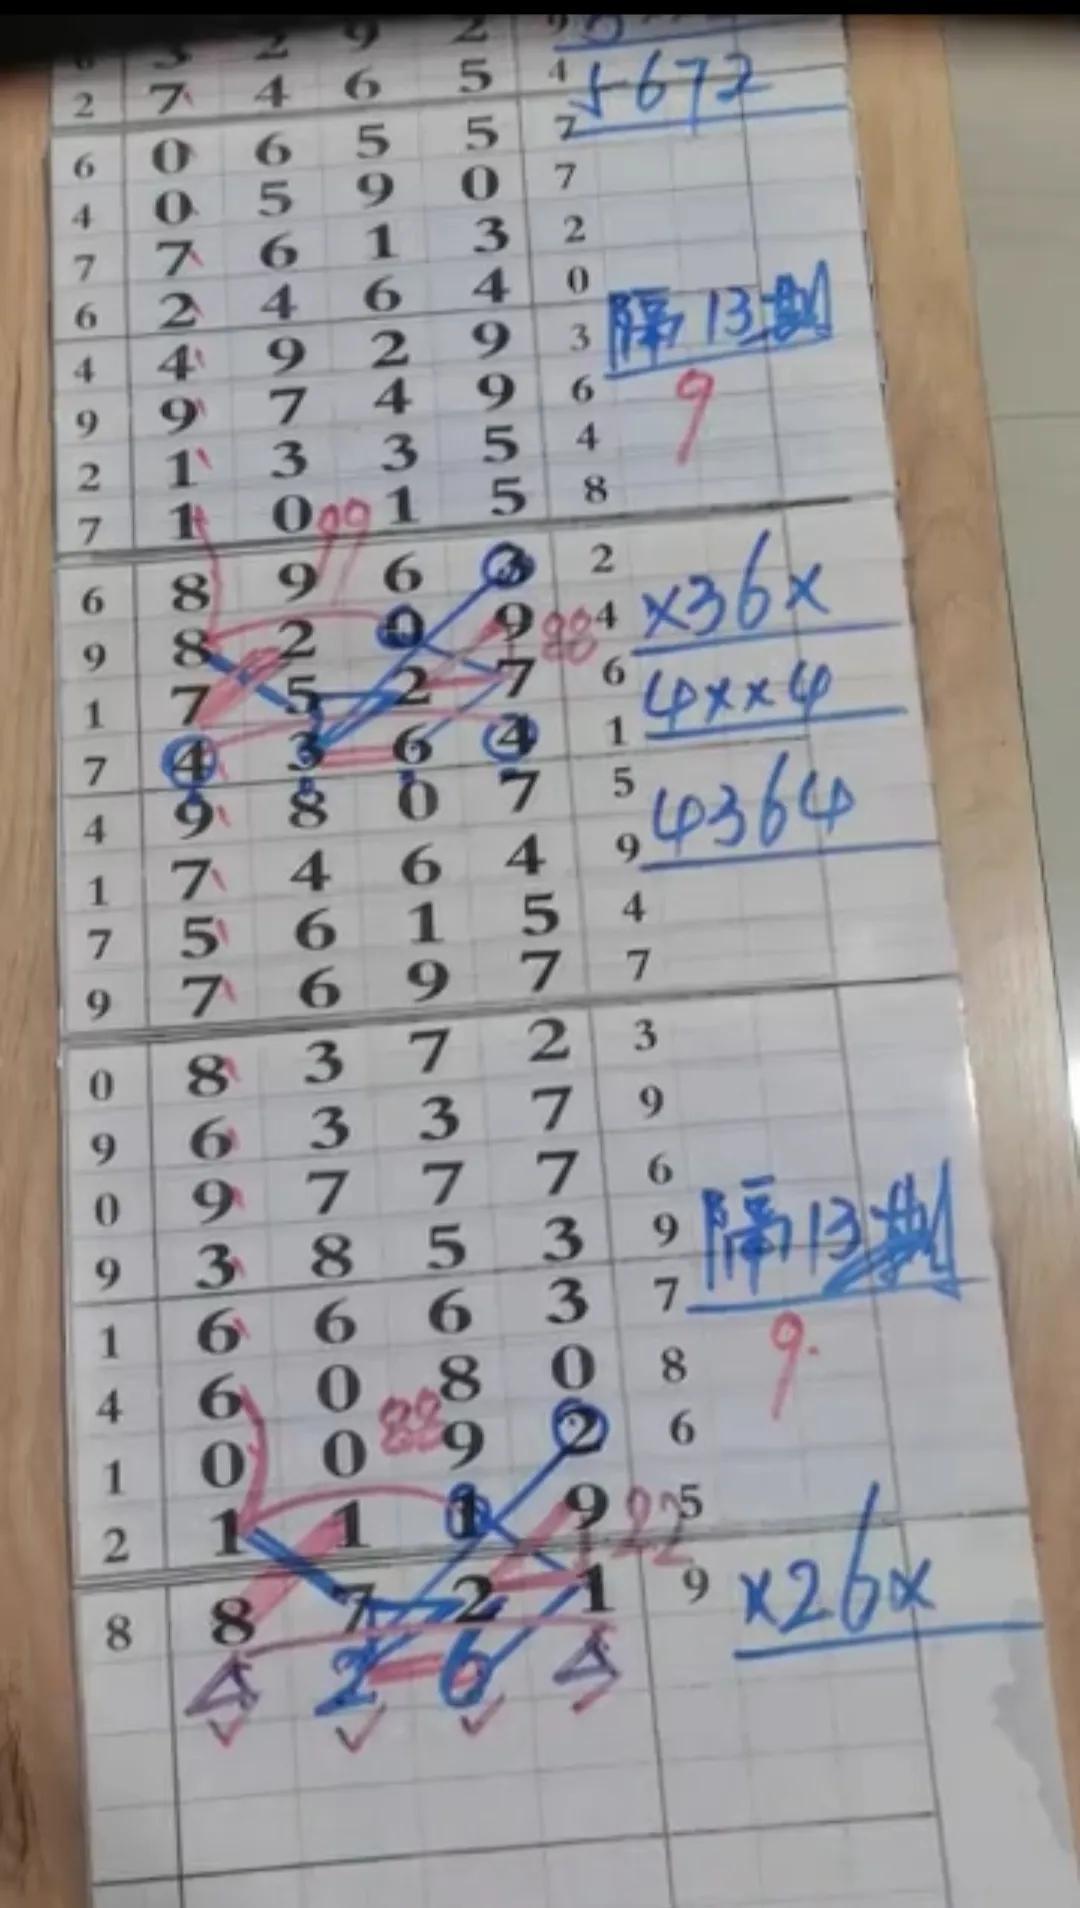 3 2 9 2 9
2 7 4 6 5 4 5672
6 0 6 5 5 7
4 0 5 9 0 7
7 7 6 1 3 2
6 2 4 6 4 0
4 4 9 2 9 3 隔13期
9 9 7 4 9 6 9
2 1 3 3 5 4
7 1 0 1 5 8
99
6 8 9 6 3 2 x36x
9 8 2 0 9 4
88
1 7 5 2 7 6 4xx4
7 4 3 6 4 1
4 9 8 0 7 5 4364
1 7 4 6 4 9
7 5 6 1 5 4
9 7 6 9 7 7
0 8 3 7 2 3
9 6 3 3 7 9
0 9 7 7 7 6
9 3 8 5 3 9 隔13期
1 6 6 6 3 7
4 6 0 8 0 8 9.
88
1 0 0 9 2 6
2 1 1 1 9 5
22
8 8 7 2 1 9 x26x
4 2 6 4